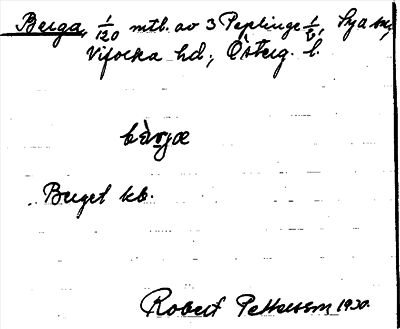 Berga, 1/120 mtl. av 3 Peplinge 1/8, Sya sn,
Vifocka hd, Österg. l.
bæ̀rjæ
Berget kb.
Robert Pettersson, 1930.